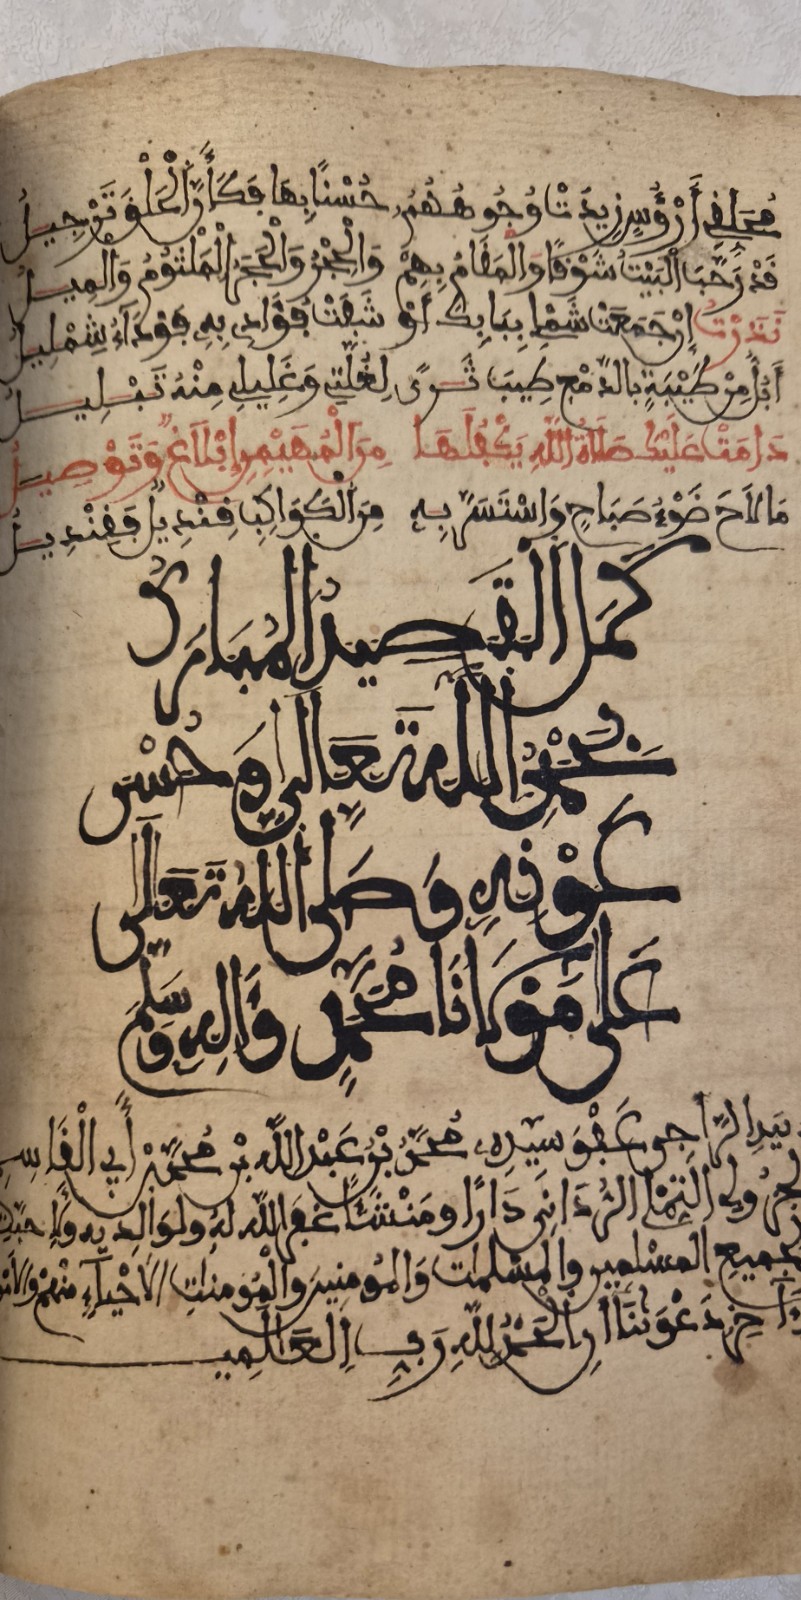 مُحَلِّقِي أَرْؤُسٍ زِيدَتْ وُجُوهُهُمُ حُسْنًا بِهَا فَكَأَنَّ الْحَلْقَ تَرْجِيلُ
قَدْ رَحَّبَ الْبَيْتُ شَوْقًا وَالْمَقَامُ بِهِمْ وَالْحِجْرُ وَالْحَجَرُ الْمَلْثُومُ وَالْمِيلُ
نَذَرْتُ إِنْ جَمَعَتْ شَمْلِي بِبَابِكَ أَوْ شَفَتْ فُؤَادِي بِهِ قَوْدَاءُ شِمْلِيلُ
أَبُلُّ مِنْ طَيْبَةٍ بِالدَّمْعِ طِيبَ ثَرًى لِغُلَّتِي وَغَلِيلِي مِنْهُ تَبْلِيلُ
دَامَتْ عَلَيْكَ صَلَاةُ اللَّهِ يَكْفُلُهَا مِنَ الْمُهَيْمِنِ إِبْلَاغٌ وَتَوْصِيلُ
مَا لَاحَ ضَوْءُ صَبَاحٍ وَاسْتَسَرَّ بِهِ مِنَ الْكَوَاكِبِ قِنْدِيلٌ فَقِنْدِيلُ
كَمَلَ الْقَصِيدُ الْمُبَارَكُ
بِحَمْدِ اللَّهِ تَعَالَى وَحُسْنِ
عَوْنِهِ وَصَلَّى اللَّهُ تَعَالَى
عَلَى مَوْلَانَا مُحَمَّدٍ وَآلِهِ وَسَلَّمَ
بِيَدِ الرَّاجِي عَفْوَ سَيِّدِهِ مُحَمَّدُ بْنُ عَبْدِ اللَّهِ بْنِ مُحَمَّدْ بْنِ أَبِي الْقَاسِمِ
التِّمْلِي الرُّدَانِي دَارًا وَمَنْشَئًا غَفَرَ اللَّهُ لَهُ وَلِوَالِدِيهِ وَلِأَحِبَّتِهِ
وَلِجَمِيعِ الْمُسْلِمِينَ وَالْمُسْلِمَاتِ وَالْمُومِنِينَ وَالْمُومِنَاتِ الْأَحْيَاءِ مِنْهُمْ وَالْأَمْوَاتِ
وَآخِرُ دَعْوَانَا أَنِ الْحَمْدُ لِلَّهِ رَبِّ الْعَالَمِينَ